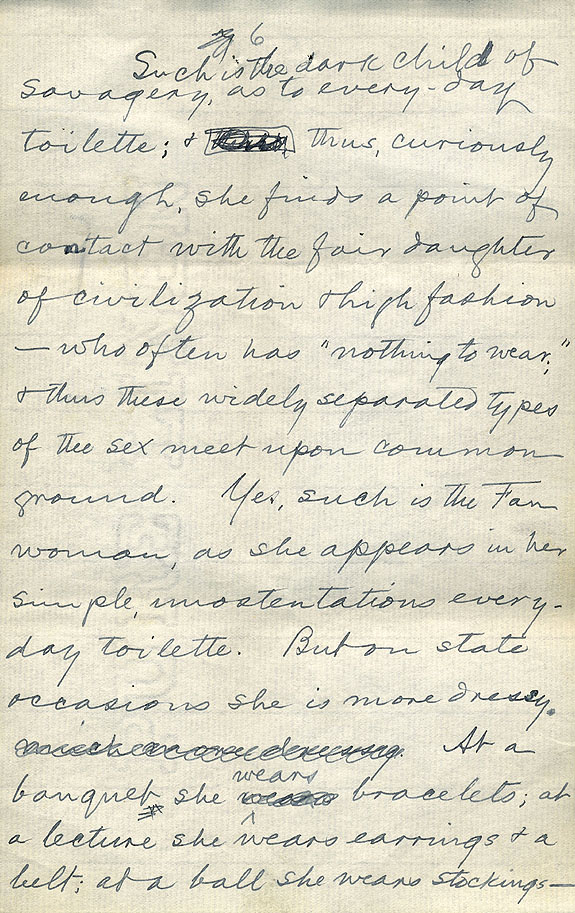 6
Such is the dark child of
savagery, as to every-day
toilette; & thus, curiously
enough, she finds a point of
contact with the fair daughter
of civilization & high fashion
— who often has "nothing to wear;"
& thus these widely separated types
of the sex meet upon common
ground. Yes, such is the Fan
woman, as she appears in her
simple, unostentatious every-
day toilette. But on state
occasions she is more dressy.
much more dressy. At a
wears
banquet she bracelets; at
a lecture she wears earrings & a
belt; at a ball she wears stockings—